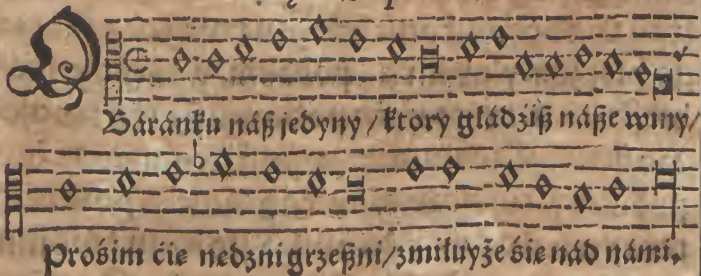 O
Báránku náß jedyny / ktory głádźiß náße winy /
Prośim ćie nedzni grzeßni / zmiłuyże śie nád námi.